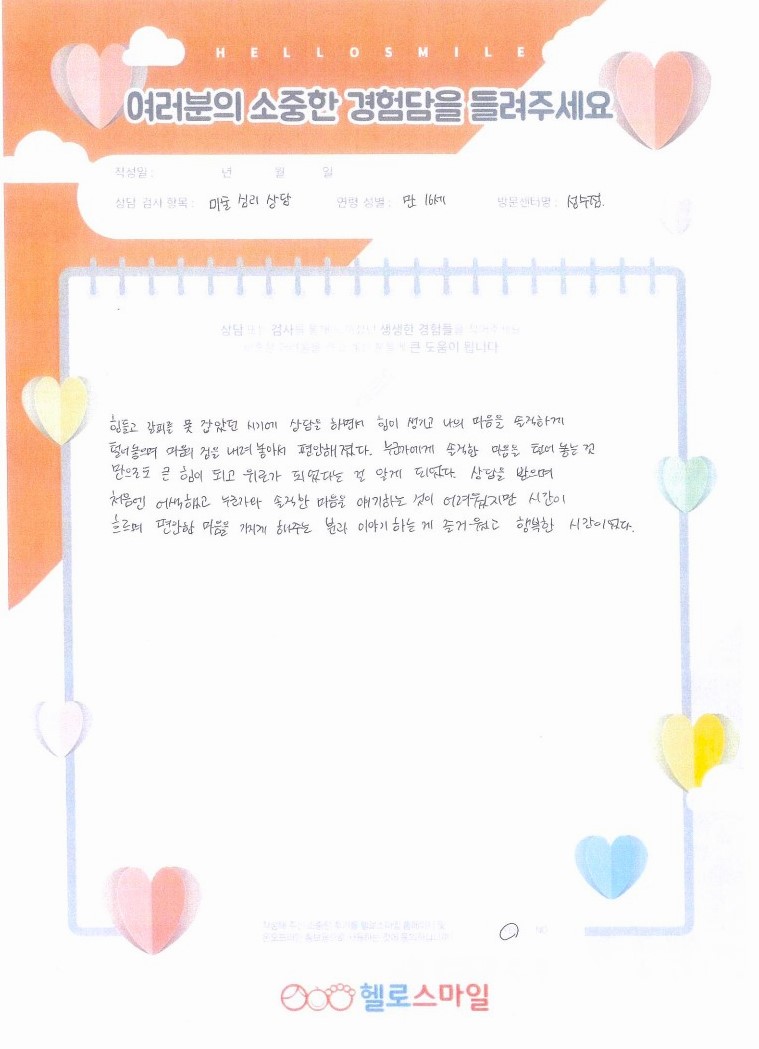 HELLOSMILE
여러분의 소중한 경험담을 들려주세요
작성일 : 년 월 일
상담 검사 항목 : 미술 심리 상담 연령 성별 : 만 16세 방문센터명 : 성수점.
상담 또는 검사를 통해 느끼셨던 생생한 경험들을
큰 도움이 됩니다
힘들고 갈피를 못 잡았던 시기에 상담을 하면서 힘이 생기고 나의 마음을 솔직하게
털어놓으며 마음의 짐을 내려 놓아서 편안해졌다. 누군가에게 솔직한 마음을 털어 놓는 것
만으로도 큰 힘이 되고 위로가 되었다는 걸 알게 되었다. 상담을 받으며
처음엔 어색했고 누군가와 솔직한 마음을 얘기하는 것이 어려웠지만 시간이
흐르며 편안한 마음을 가지게 해주는 분과 이야기 하는 게 즐거웠고 행복한 시간이었다.
헬로스마일